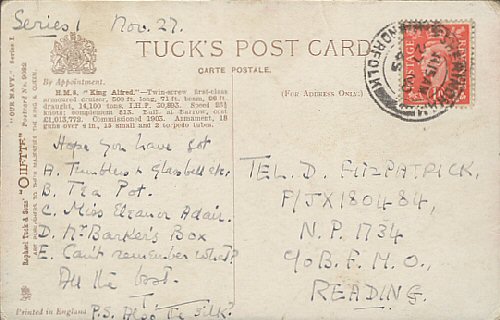 Series 1 Nov. 27.
TUCK'S POST CARD
CARTE POSTALE.
By Appointment.
(For Address Only.)
H.M.S. "King Alfred."—Twin-screw first-class
armoured cruiser, 500 ft. long, 71 ft. beam, 26 ft.
draught, 14,100 tons, I.H.P. 30,893. Speed 23½
knots; complement 813. Built at Barrow, cost
£1,013,772. Commissioned 1903. Armament, 18
guns over 4 in., 15 small and 2 torpedo tubes.
Hope you have got
A. Tumblers & Glasbell etc.
B. Tea Pot.
C. Miss Eleanor Adair.
D. Mr Barker's Box
E. Can't remember what?
All the best.
P.S. Also the silk?
TEL. D. FITZPATRICK,
P/JX180484,
N.P. 1734
c/o B.F.M.O.,
READING.
Printed in England
Raphael Tuck & Sons' "OILETTE"
"OUR NAVY." Series I
Postcard No. 9092
ART PUBLISHERS TO THEIR MAJESTIES THE KING & QUEEN.
POSTAGE
NORFOLK